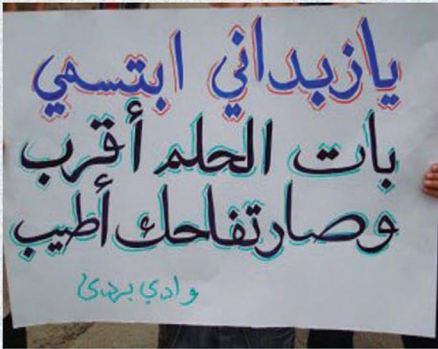 يا زبداني ابتسمي
بات الحلم أقرب
وصار تفاحك أطيب
وادي بردى